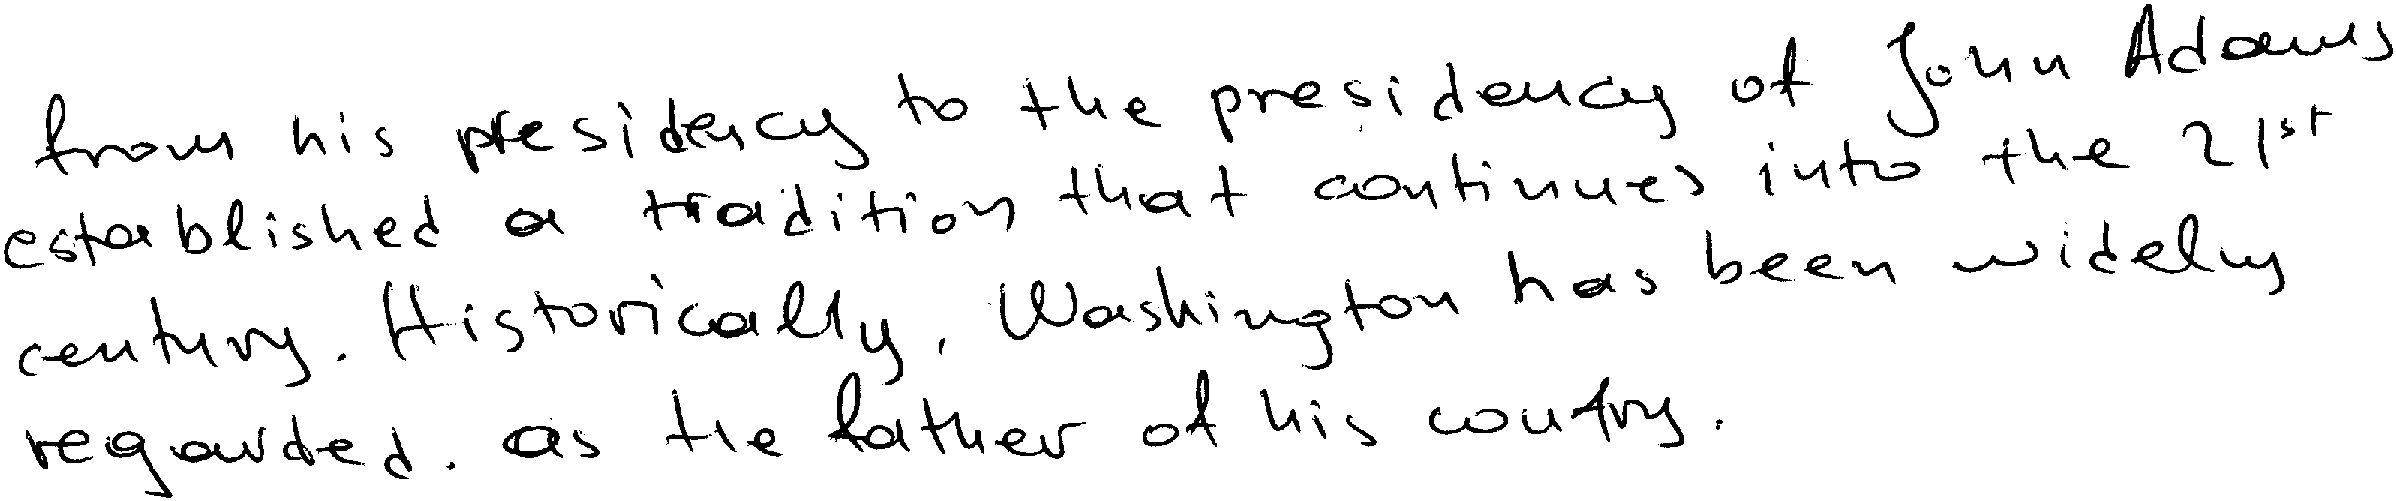 from his presidency to the presidency of John Adams
established a tradition that continues into the 21st
century. Historically, Washington has been widely
regarded. as the father of his country.